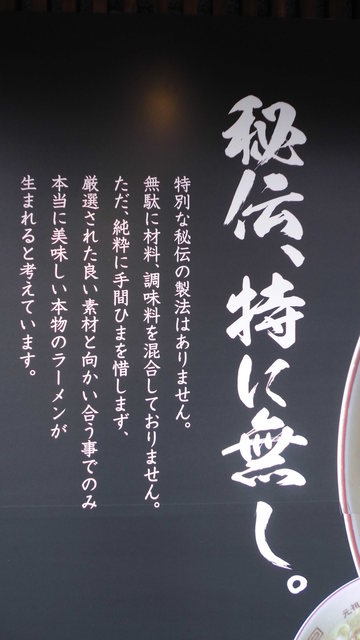 秘伝、特に無し。
特別な秘伝の製法はありません。
無駄に材料、調味料を混合しておりません。
ただ、純粋に手間ひまを惜しまず、
厳選された良い素材と向かい合う事でのみ
本当に美味しい本物のラーメンが
生まれると考えています。
元祖